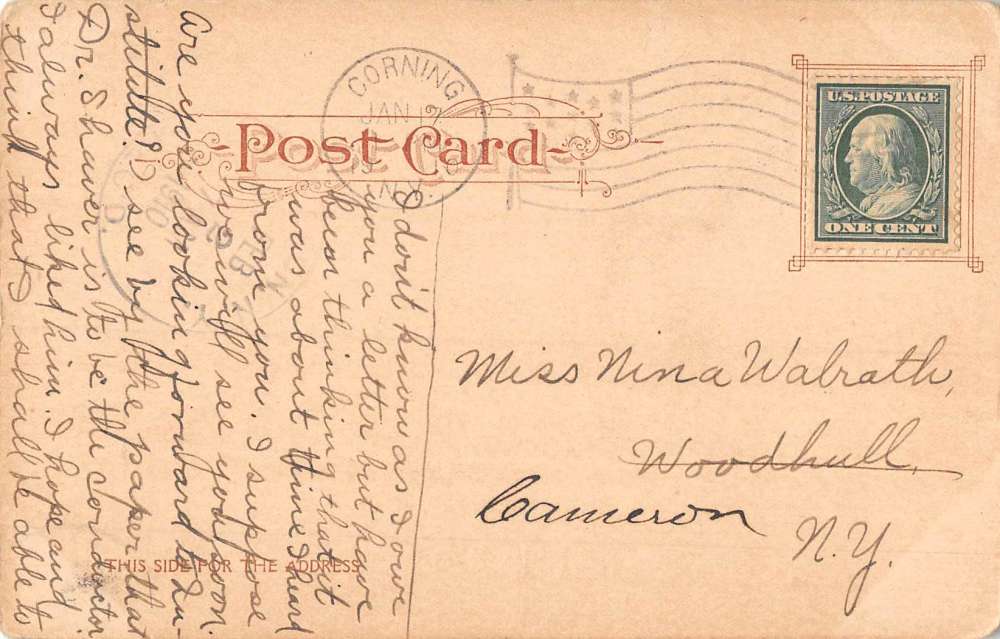 POST CARD
CORNING
JAN
N.Y.
U.S. POSTAGE
ONE CENT
Miss Nina Walrath,
Woodhull,
Cameron
N.Y.
THIS SIDE FOR THE ADDRESS
I don't know as I owe
you a letter but have
been thinking that it
was about time I heard
from you. I suppose
we will see you soon.
Are you looking forward to In-
stitute? I see by the paper that
Dr. Shaver is to be the conductor
I always liked him. I hope and
think that I shall be able to
FEB
N.Y.